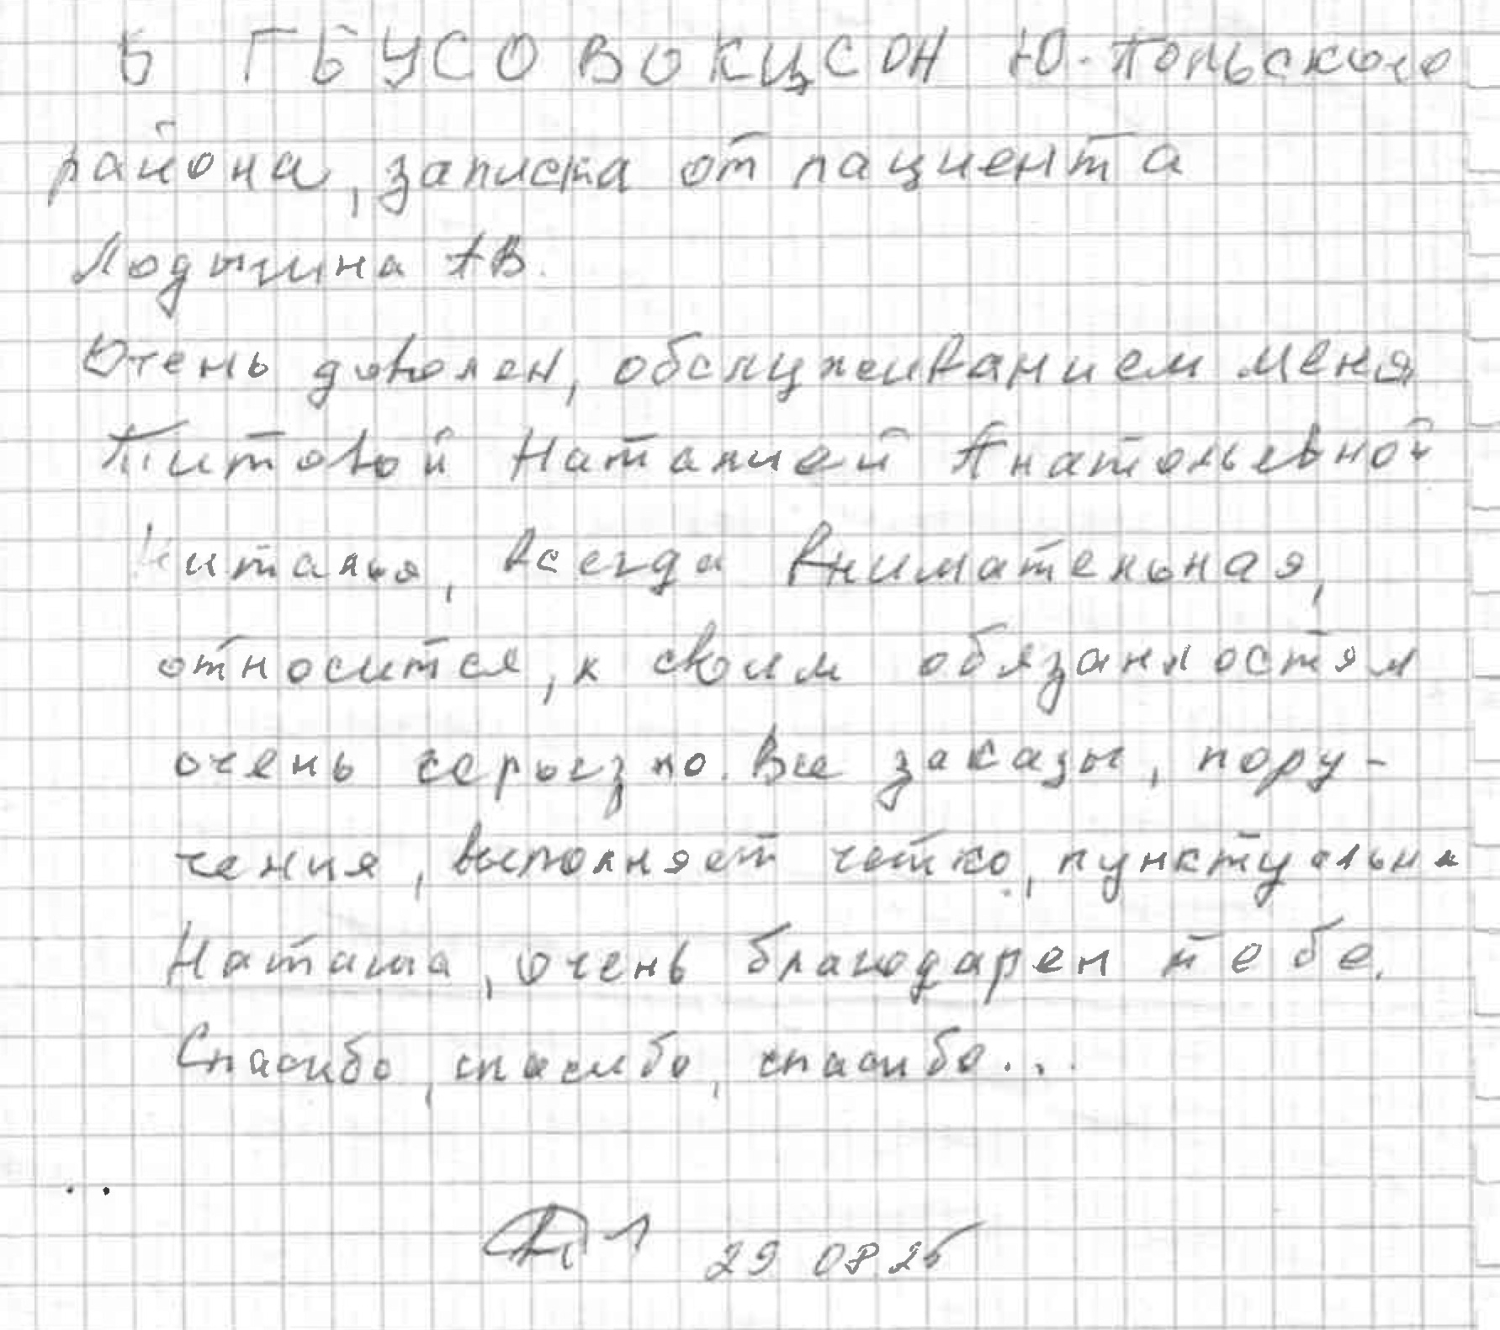 В ГБУСОВОКЦСОН Ю-Польского
района, записка от пациента
Лодыгина АВ.
Очень доволен, обслуживанием меня
Титовой Наталией Анатольевной
Наталья, всегда внимательная,
относится, к своим обязанностям
очень серьезно. Все заказы, пору-
чения, выполняет четко, пунктуально
Наташа, очень благодарен тебе.
Спасибо, спасибо, спасибо...
29 08.25